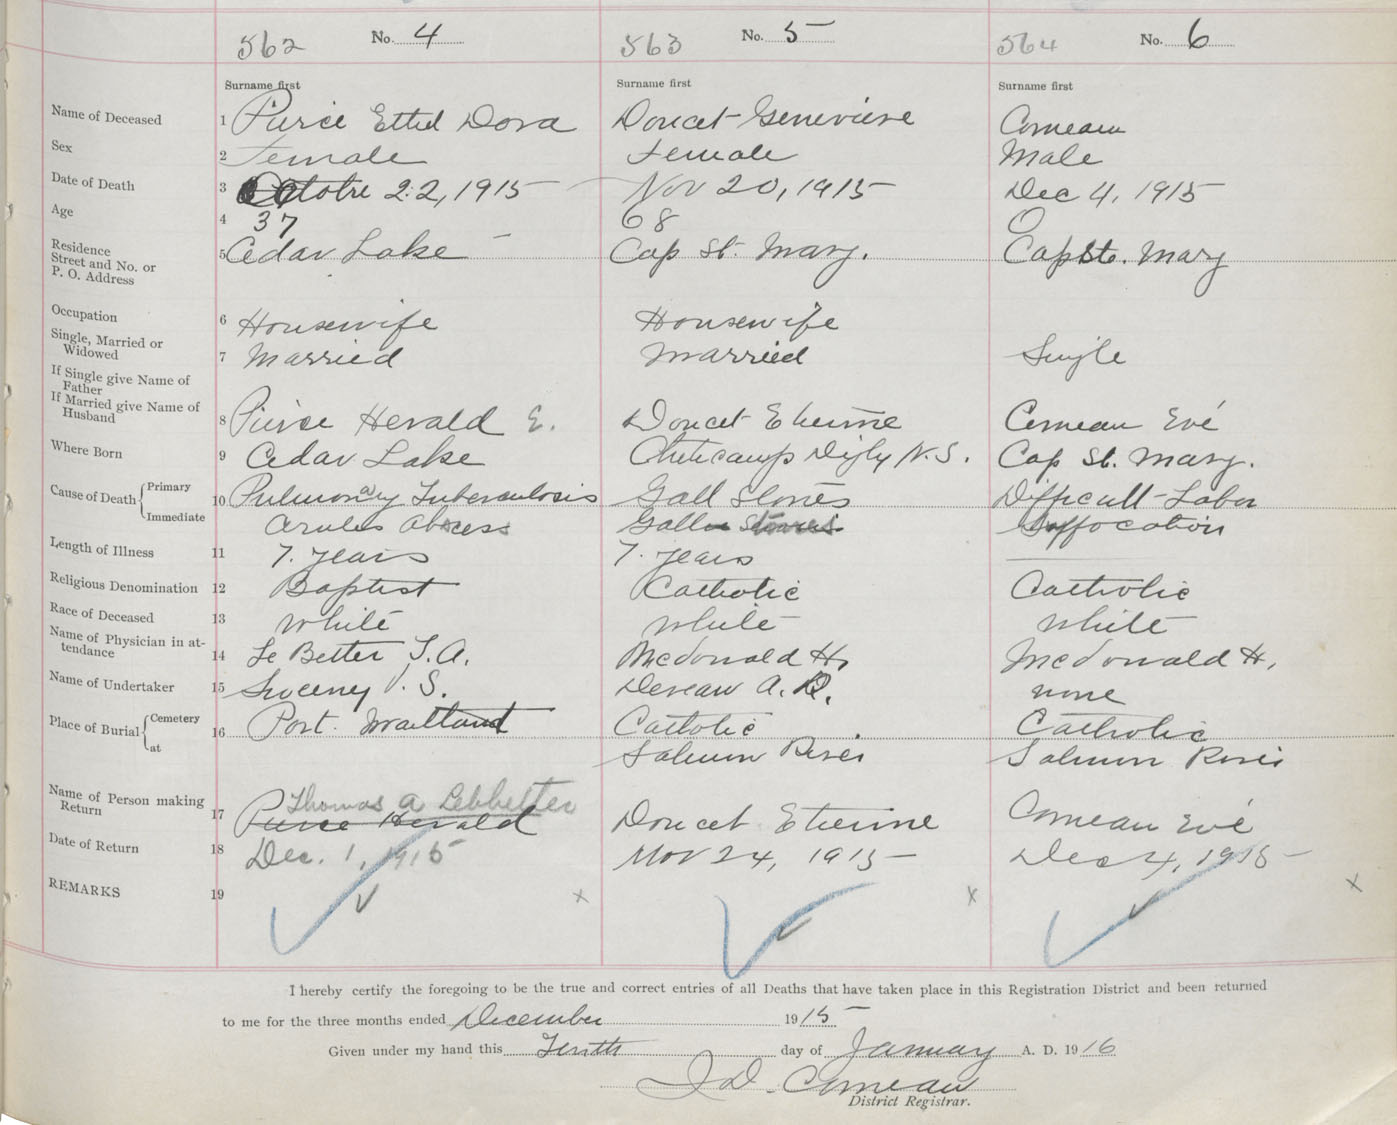 562 No. 4 563 No. 5 564 No. 6
Surname first Surname first Surname first
Name of Deceased 1 Pierce Ethel Dora Doucet Genevieve Comeau
Sex 2 Female Female Male
Date of Death 3 Octobre 22, 1915 Nov 20, 1915 Dec 4, 1915
Age 4 37 68 0
Residence
Street and No. or
P. O. Address 5 Cedar Lake Cap St. Mary. Cap St. Mary
Occupation 6 Housewife Housewife
Single, Married or
Widowed 7 Married Married Single
If Single give Name of
Father
If Married give Name of
Husband 8 Pierce Herald E. Doucet Etienne Comeau Evé
Where Born 9 Cedar Lake Cheticamp Digby N.S. Cap St. Mary.
Cause of Death Primary 10 Pulmonary Tuberculosis Gall Stones Difficult Labor
Immediate abscess Gall Stones Suffocation
Length of Illness 11 7. years 7. years
Religious Denomination 12 Baptist Catholic Catholic
Race of Deceased 13 White White White
Name of Physician in at-
tendance 14 Le Better T. A. McDonald H. McDonald H.
Name of Undertaker 15 Sweeny V. S. Deveau A. D. none
Place of Burial Cemetery 16 Port. Maitland Catholic Catholic
at Salmon River Salmon River
Name of Person making Thomas A Lebbetter
Return 17 Pierce Herald Doucet Etienne Comeau Evé
Date of Return 18 Dec. 1, 1915 Nov 24, 1915 Dec 4, 1915
REMARKS 19
I hereby certify the foregoing to be the true and correct entries of all Deaths that have taken place in this Registration District and been returned
to me for the three months ended December 1915
Given under my hand this Tenth day of January A. D. 1916
J D. Comeau
District Registrar.